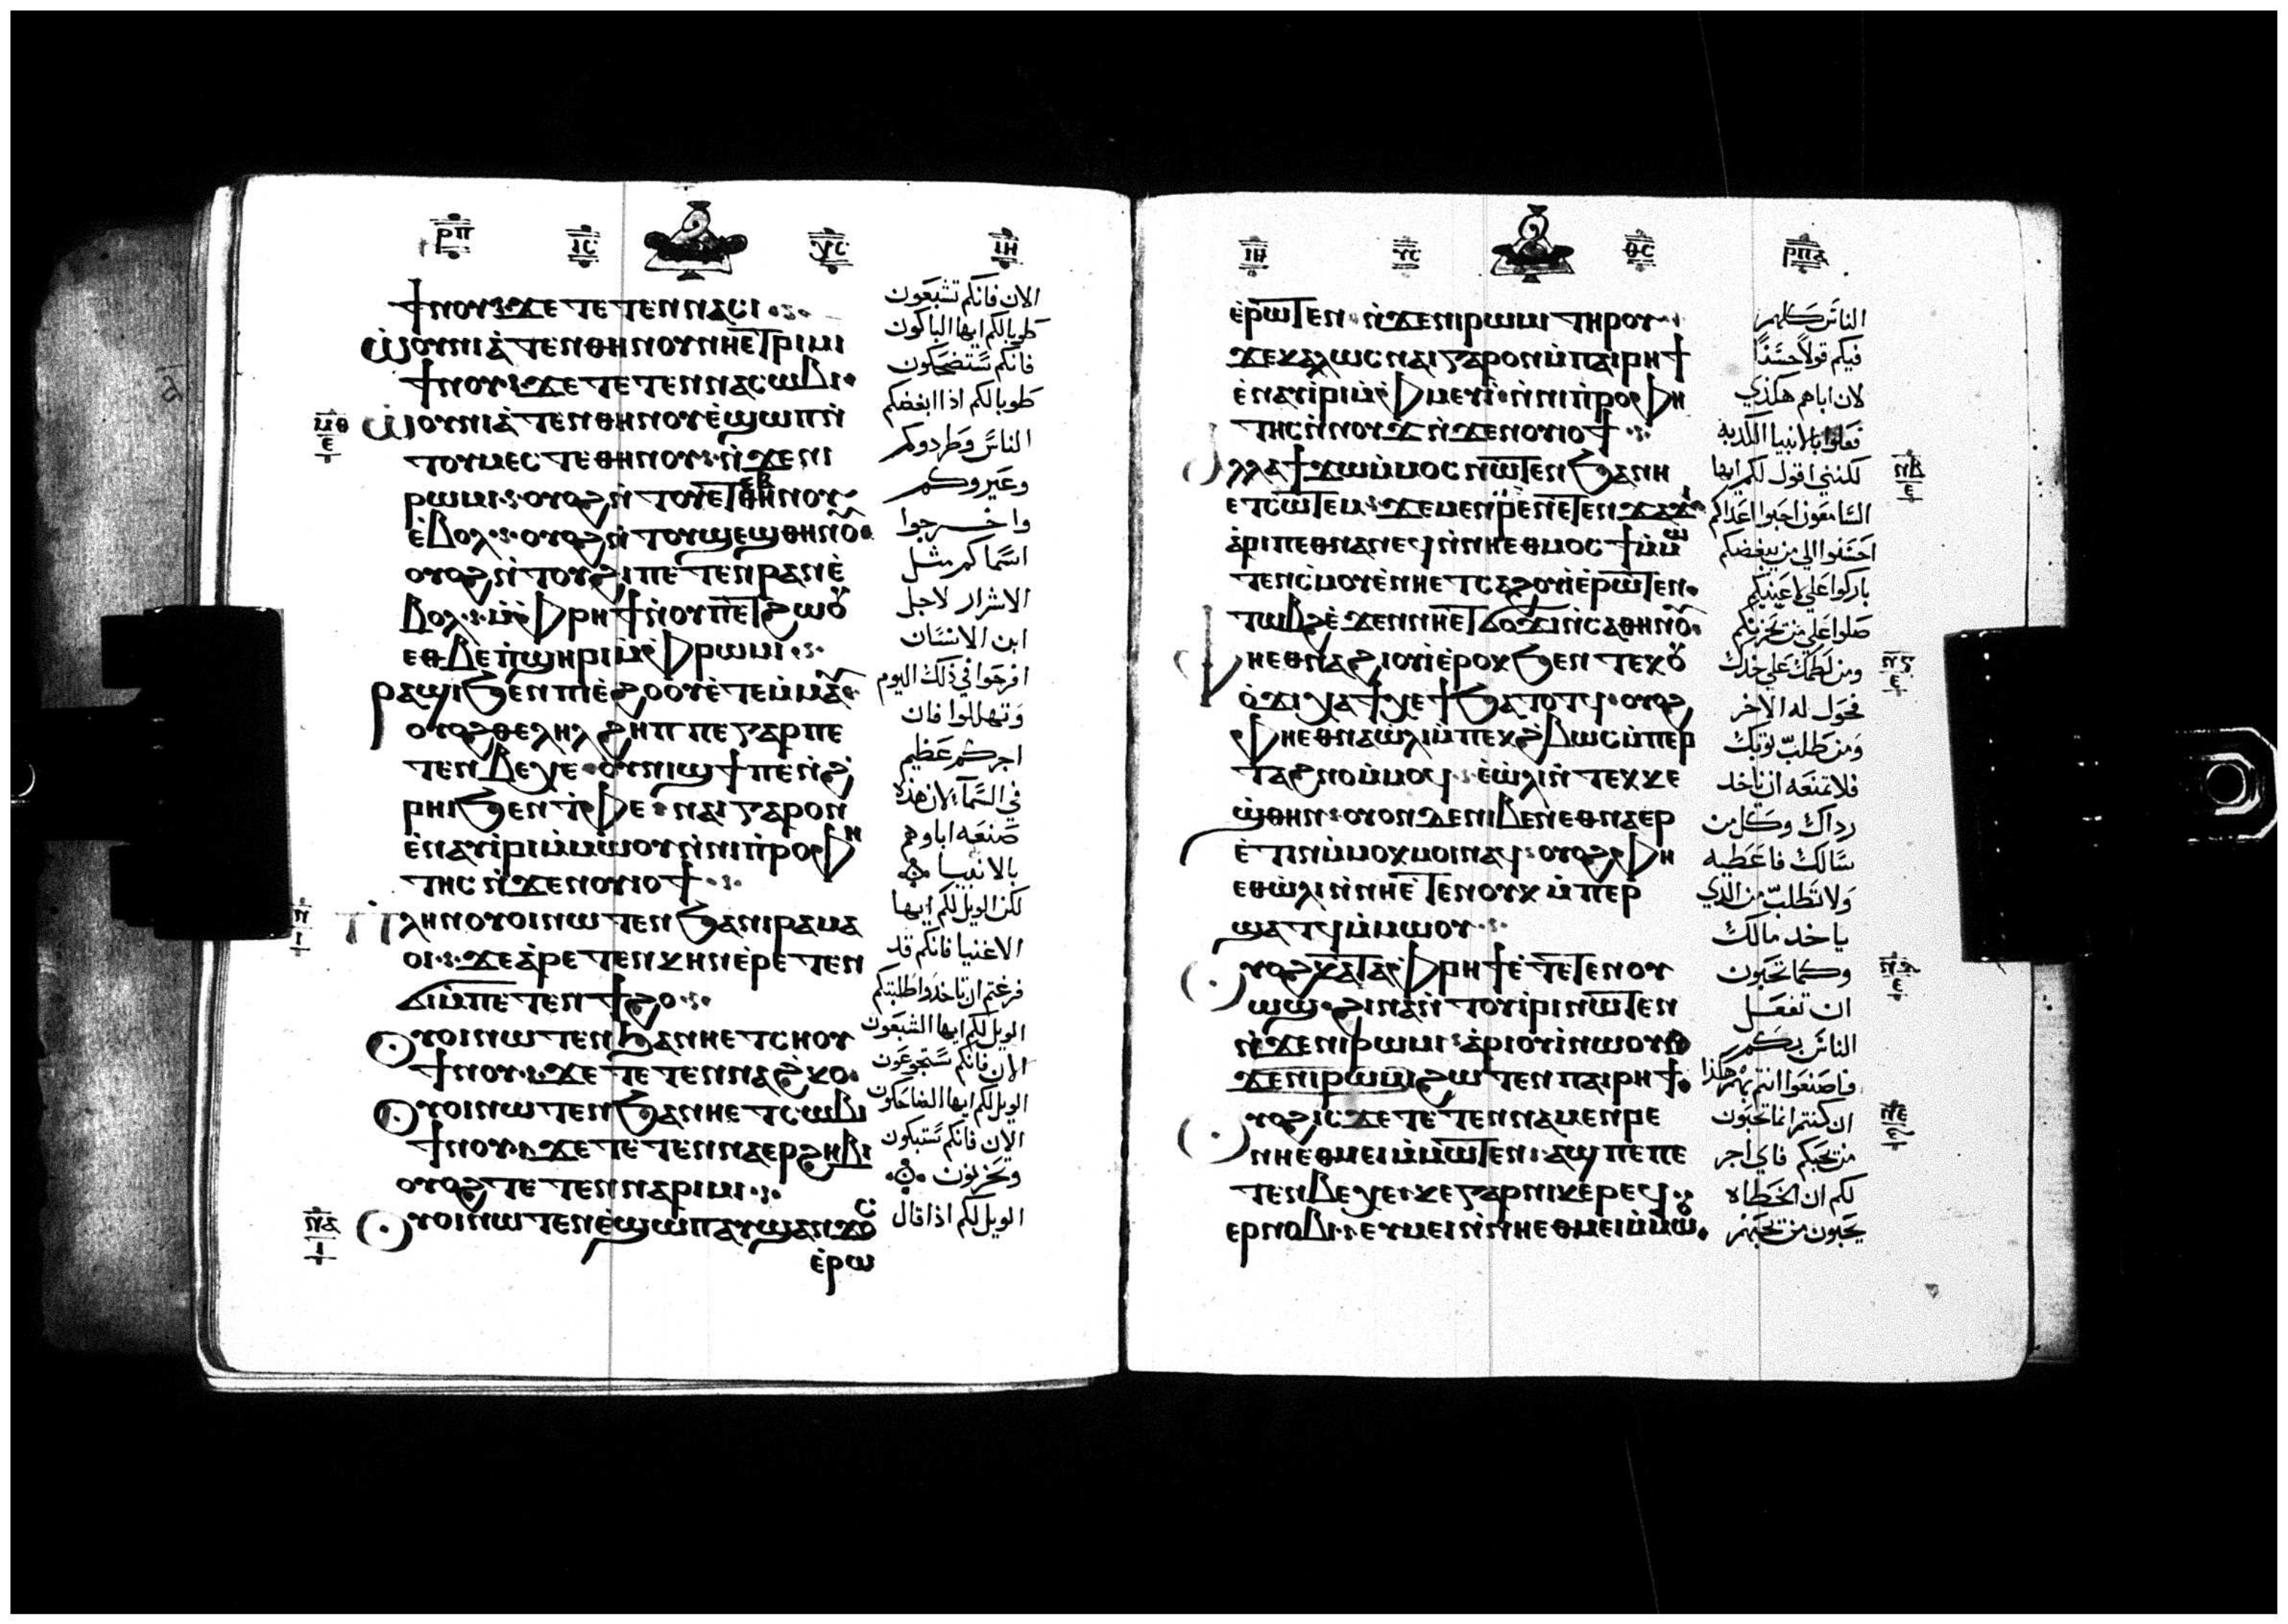 ⲣⲡ ⲓⲥ ⲭⲥ ⲓⲏ
ϯⲛⲟⲩ ϫⲉ ⲧⲉⲧⲉⲛⲛⲁⲥⲓ
ⲱⲟⲩⲛⲓⲁⲧⲉⲛⲑⲏⲛⲟⲩ ⲛⲏⲉⲧⲣⲓⲙⲓ
ϯⲛⲟⲩ ϫⲉ ⲧⲉⲧⲉⲛⲛⲁⲥⲱⲃⲓ
ⲱⲟⲩⲛⲓⲁⲧⲉⲛⲑⲏⲛⲟⲩ ⲉϣⲱⲡ ⲛ
ⲧⲟⲩⲙⲉⲥⲧⲉ ⲑⲏⲛⲟⲩ ⲛϫⲉ ⲛⲓ
ⲣⲱⲙⲓ ⲟⲩⲟϩ ⲛⲧⲟⲩⲉⲧ ⲑⲏⲛⲟⲩ
ⲉⲃⲟⲗ ⲟⲩⲟϩ ⲛⲧⲟⲩϣⲉϣ ⲑⲏⲛⲟⲩ
ⲟⲩⲟϩ ⲛⲧⲟⲩϩⲓ ⲡⲉⲧⲉⲛⲣⲁⲛ ⲉ
ⲃⲟⲗ ⲙⲫⲣⲏϯ ⲛⲟⲩⲡⲉⲧϩⲱⲟⲩ
ⲉⲑⲃⲉ ⲡϣⲏⲣⲓ ⲙⲫⲣⲱⲙⲓ
ⲣⲁϣⲓ ϧⲉⲛ ⲡⲓⲉϩⲟⲟⲩ ⲉⲧⲉⲙⲙⲁⲩ
ⲟⲩⲟϩ ⲑⲉⲗⲏⲗ ϩⲏⲡⲡⲉ ⲅⲁⲣ ⲡⲉ
ⲧⲉⲛⲃⲉⲭⲉ ⲟⲩⲛⲓϣϯ ⲡⲉ ⲛϩ
ⲣⲏⲓ ϧⲉⲛ ⲧⲫⲉ ⲛⲁⲓ ⲅⲁⲣ ⲟⲛ
ⲉⲛⲁⲩⲓⲣⲓ ⲙⲙⲱⲟⲩ ⲛⲛⲓⲡⲣⲟⲫⲏ
ⲧⲏⲥ ⲛϫⲉ ⲛⲟⲩⲓⲟϯ
ⲡⲗⲏⲛ ⲟⲩⲟⲓ ⲛⲱⲧⲉⲛ ϧⲁ ⲛⲓⲣⲁⲙⲁ
ⲟⲓ ϫⲉ ⲁⲣⲉⲧⲉⲛⲕⲏⲛ ⲉⲣⲉⲧⲉⲛ
ϭⲓ ⲙⲡⲉⲧⲉⲛϯϩⲟ
ⲟⲩⲟⲓ ⲛⲱⲧⲉⲛ ϧⲁ ⲛⲏⲉⲧⲥⲏⲟⲩ
ϯⲛⲟⲩ ϫⲉ ⲧⲉⲧⲉⲛⲛⲁϩⲕⲟ
ⲟⲩⲟⲓ ⲛⲱⲧⲉⲛ ϧⲁ ⲛⲏⲉⲧⲥⲱⲃⲓ
ϯⲛⲟⲩ ϫⲉ ⲧⲉⲧⲉⲛⲛⲁⲉⲣϩⲏⲃⲓ
ⲟⲩⲟϩ ⲧⲉⲧⲉⲛⲛⲁⲣⲓⲙⲓ
ⲟⲩⲟⲓ ⲛⲱⲧⲉⲛ ⲉϣⲱⲡ ⲁⲩϣⲁⲛϫⲟⲥ
ⲉⲣⲱ
الان فانكم تشبعون
طوبا لكم ايها الباكون
فانكم ستضحكون
طوبا لكم اذا ابغضكم
الناس وطردوكم
وعيروكم
واخرجوا
اسماكم مثل
الاشرار لاجل
ابن الانسان
افرحوا في ذلك اليوم
وتهللوا فان
اجركم عظيم
في السماء لان هذه
صنعه اباوهم
بالانبيا
لكن الويل لكم ايها
الاغنيا فانكم قد
فرغتم ان تاخدوا طلبتكم
الويل لكم ايها الشبعون
الان فانكم ستجوعون
الويل لكم ايها الضاحكون
الان فانكم ستبكون
وتحزنون
الويل لكم اذا قال
ⲙⲑ ⲉ
ⲡ ⲓ
ⲡⲁ ⲓ
ⲓⲏ ⲩⲥ ⲑⲥ ⲣⲡⲁ
ⲉⲣⲱⲧⲉⲛ ⲛϫⲉ ⲛⲓⲣⲱⲙⲓ ⲧⲏⲣⲟⲩ
ϫⲉ ⲕⲁⲗⲱⲥ ⲛⲁⲓ ⲅⲁⲣ ⲟⲛ ⲙⲡⲁⲓⲣⲏϯ
ⲉⲛⲁⲩⲓⲣⲓ ⲙⲫⲙⲉⲩⲓ ⲛⲛⲓⲡⲣⲟⲫⲏ
ⲧⲏⲥ ⲛⲛⲟⲩϫ ⲛϫⲉ ⲛⲟⲩⲓⲟϯ
ⲁⲗⲗⲁ ϯϫⲱ ⲙⲙⲟⲥ ⲛⲱⲧⲉⲛ ϧⲁ ⲛⲏ
ⲉⲧⲥⲱⲧⲉⲙ ϫⲉ ⲙⲉⲛⲣⲉ ⲛⲉⲧⲉⲛϫⲁϫⲓ
ⲁⲣⲓⲡⲉⲑⲛⲁⲛⲉϥ ⲛⲛⲏⲉⲑⲙⲟⲥϯ ⲙⲙⲱ
ⲧⲉⲛ ⲥⲙⲟⲩ ⲉⲛⲏⲉⲧⲥⲁϩⲟⲩⲓ ⲉⲣⲱⲧⲉⲛ
ⲧⲱⲃϩ ⲉϫⲉⲛ ⲛⲏⲉⲧϭⲟϫⲓ ⲛⲥⲁ ⲑⲏⲛⲟⲩ
ⲫⲏⲉⲑⲛⲁϩⲓⲟⲩⲓ ⲉⲣⲟⲕ ϧⲉⲛ ⲧⲉⲕⲟⲩ
ⲟϫⲓ ⲭⲁ ϯⲭⲉϯ ϧⲁⲧⲟⲧϥ ⲟⲩⲟϩ
ⲫⲏⲉⲑⲛⲁⲱⲗⲓ ⲙⲡⲉⲕϩⲃⲱⲥ ⲙⲡⲉⲣ
ⲧⲁϩⲛⲟ ⲙⲙⲟϥ ⲉⲱⲗⲓ ⲛⲧⲉⲕⲕⲉ
ϣⲑⲏⲛ ⲟⲩⲟⲛ ⲇⲉ ⲛⲓⲃⲉⲛ ⲉⲑⲛⲁⲉⲣ
ⲉⲧⲓⲛ ⲙⲙⲟⲕ ⲙⲟⲓ ⲛⲁϥ ⲟⲩⲟϩ ⲫⲏ
ⲉⲑⲱⲗⲓ ⲛⲛⲏⲉⲧⲉⲛⲟⲩⲕ ⲙⲡⲉⲣ
ϣⲁⲧϥ ⲙⲙⲱⲟⲩ
ⲟⲩⲟϩ ⲕⲁⲧⲁ ⲫⲣⲏϯ ⲉⲧⲉⲧⲉⲛⲟⲩ
ⲱϣ ϩⲓⲛⲁ ⲛⲧⲟⲩⲓⲣⲓ ⲛⲱⲧⲉⲛ
ⲛϫⲉ ⲛⲓⲣⲱⲙⲓ ⲁⲣⲓⲟⲩⲓ ⲛⲱⲟⲩ
ϫⲉ ⲛⲓⲣⲱⲙⲓ ϩⲱⲧⲉⲛ ⲡⲁⲓⲣⲏϯ
ⲟⲩⲟϩ ⲓⲥϫⲉ ⲧⲉⲧⲉⲛⲛⲁⲙⲉⲛⲣⲉ
ⲛⲏⲉⲑⲙⲉⲓ ⲙⲙⲱⲧⲉⲛ ⲁϣ ⲡⲉ ⲡⲉ
ⲧⲉⲛⲃⲉⲭⲉ ⲕⲉ ⲅⲁⲣ ⲛⲓⲕⲉⲣⲉϥ
ⲉⲣⲛⲟⲃⲓ ⲉⲩⲙⲉⲓ ⲛⲛⲏⲉⲑⲙⲉⲓ ⲙⲙⲱⲟⲩ
الناس كلهم
فيكم قولا حسنا
لان اباهم هكذي
فعلوا بالانبيا الكدبه
لكنني اقول لكم ايها
السامعون احبوا اعداكم
احسنوا الي من يبغضكم
باركوا علي لاعنيكم
صلوا علي من يحزنكم
ومن لطمك علي خدك
فحول له الاخر
ومن طلب ثوبك
فلا تمنعه ان ياخد
رداك وكل من
سالك فاعطيه
ولا تطلب من الذي
ياخد مالك
وكما تحبون
ان تفعل
الناس بكم
فاصنعوا انتم بهم هكذا
ان كنتم انما تحبون
من يحبكم فاي اجر
لكم ان الخطاه
يحبون من يحبهم
ⲡⲃ ⲉ
ⲡⲅ ⲉ
ⲡⲇ ⲉ
ⲡⲉ